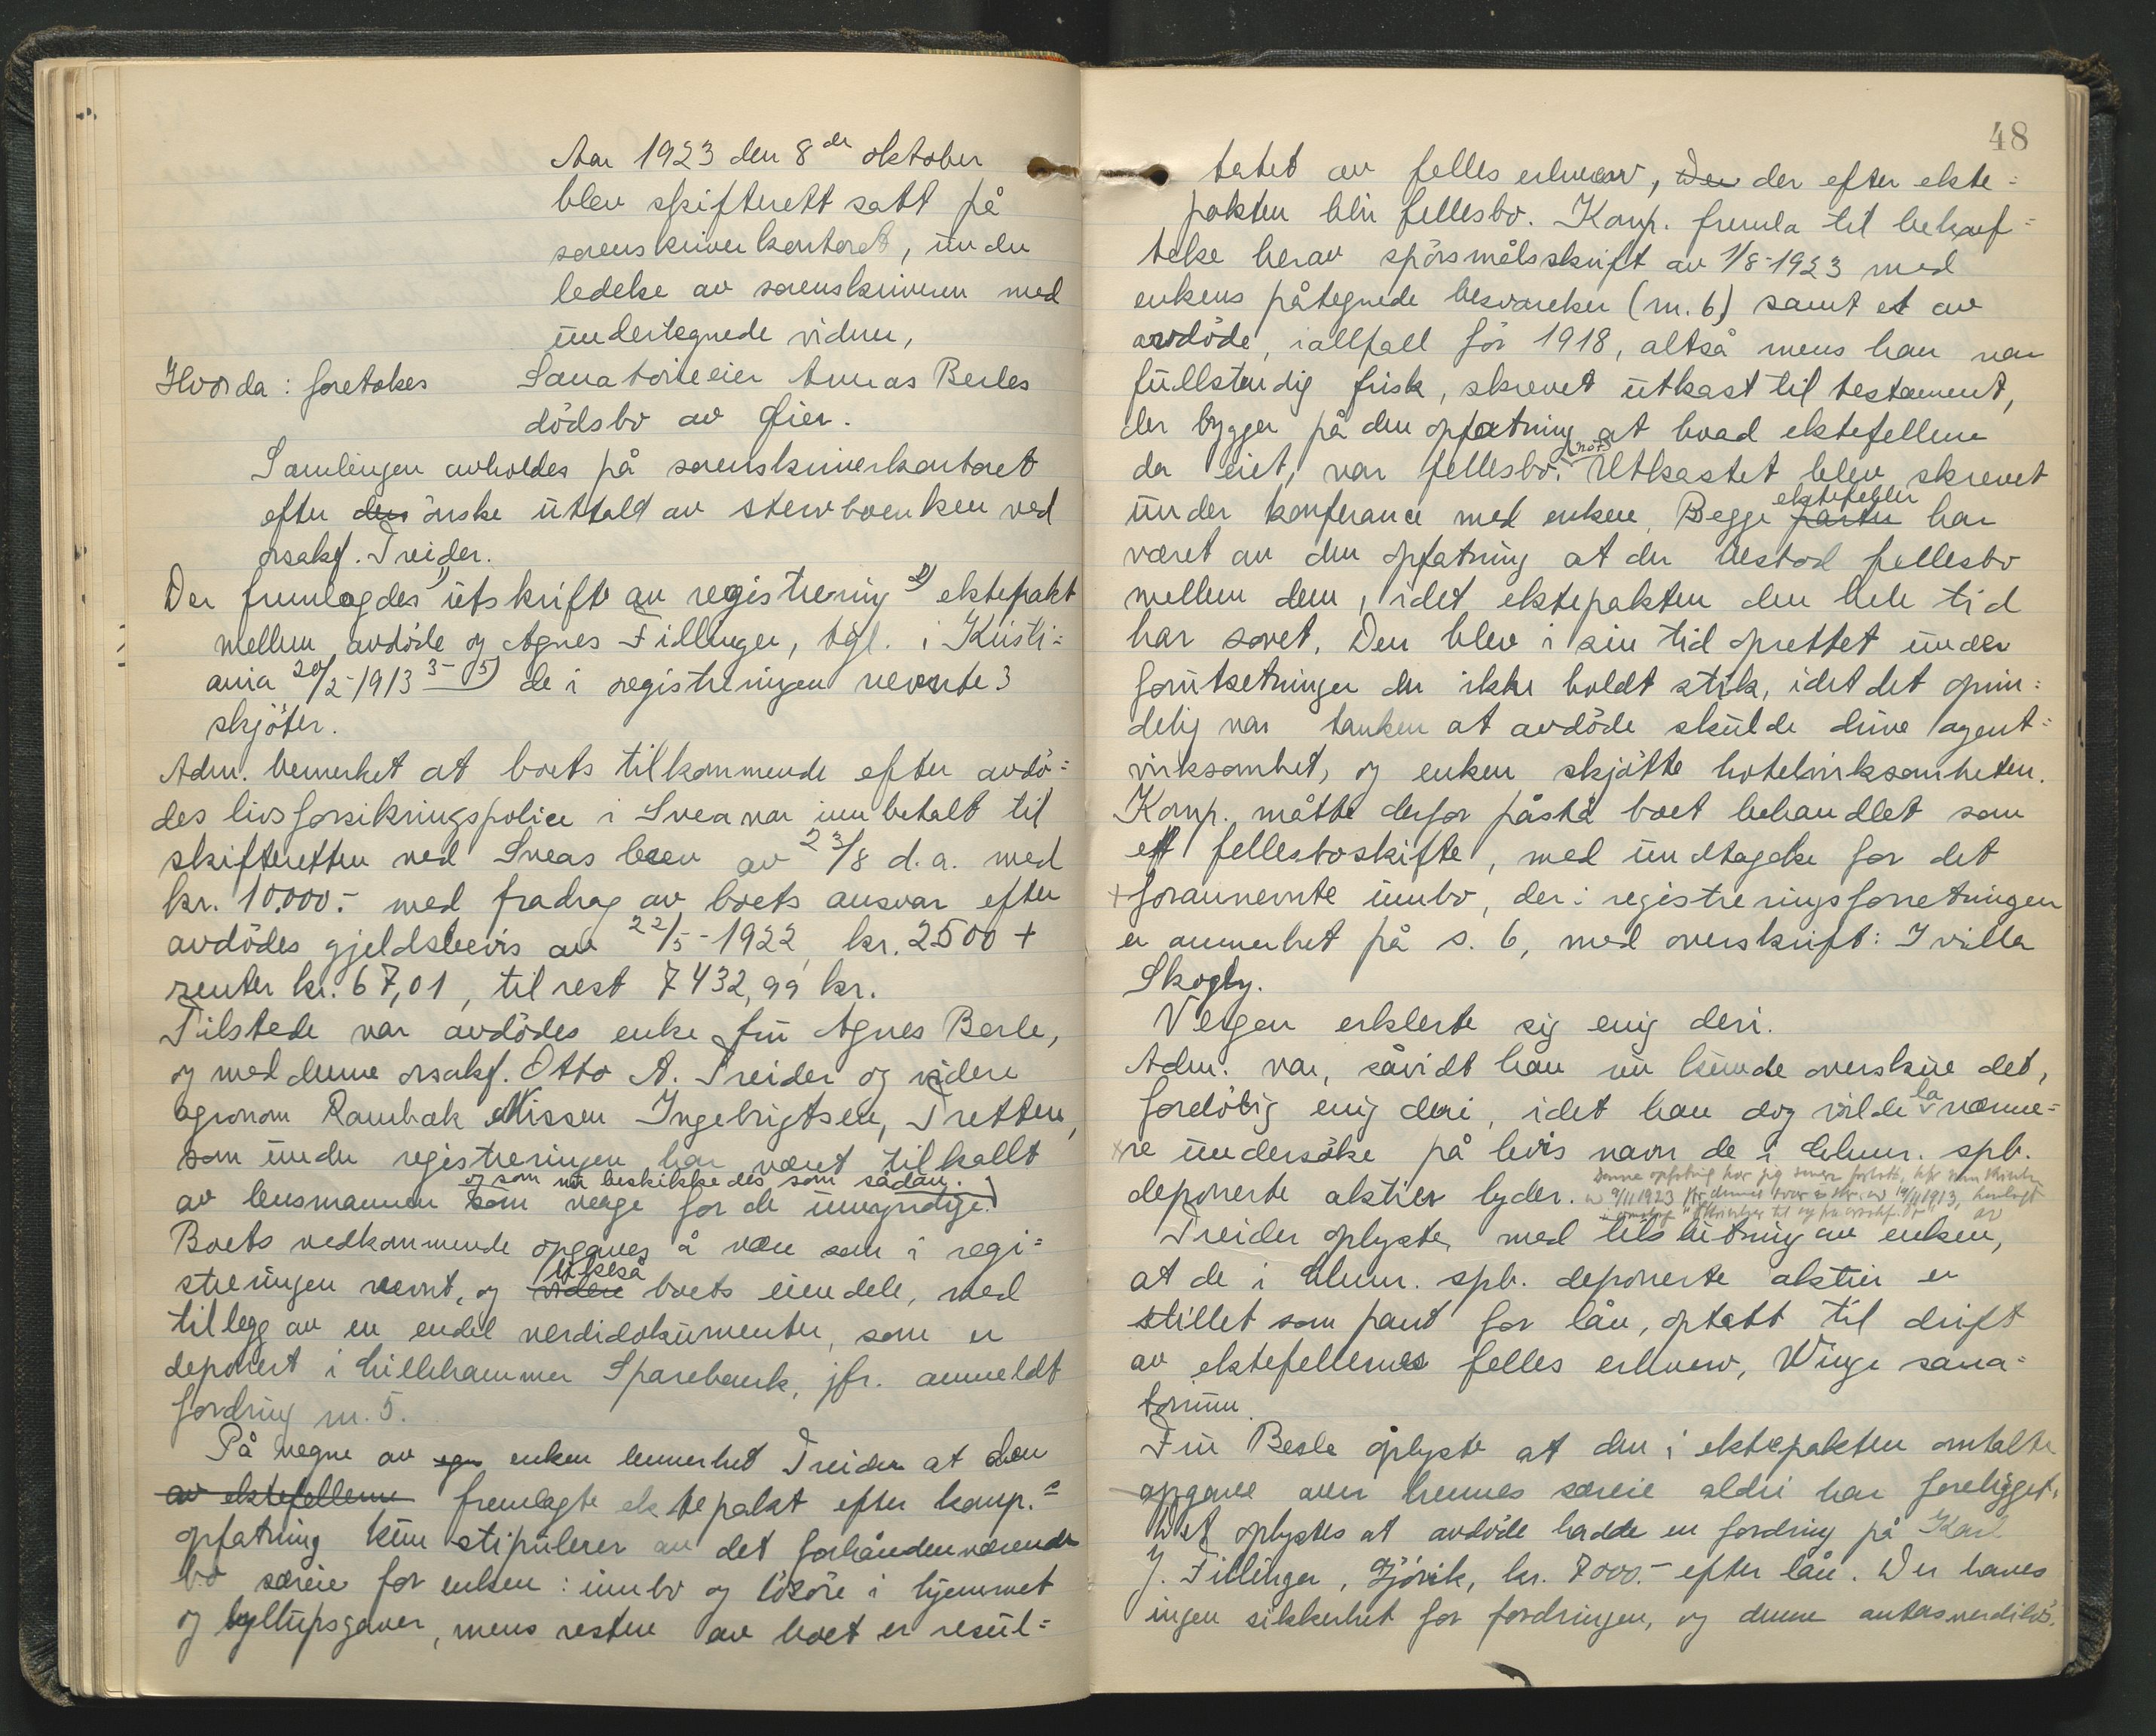 Aar 1923 den 8de oktober
blev skifterett satt på
sorenskriverkontoret, under
ledelse av sorenskriveren med
undertegnede vidner,
Hvorda: foretokes Sanatorieeier Andreas Berles
dödsbo av Öier.
Samlingen avholdes på sorenskriverkontoret
efter den önske uttalt av stervboenken ved
orsakf. Treider.
Der fremlagdes 1) utskrift av registrering 2) ektepakt
mellem avdöde og Agnes Fillinger, tgl. i Kristi=
ania 20/2-1913 3-5) de i registreringen nevnte 3
skjöter.
Adm. bemerket at boets tilkommende efter avdö=
des livsforsikringspolice i Svea var innbetalt til
skifteretten ved Sveas brev av 23/8 d.a. med
kr. 10.000.- med fradrag av boets ansvar efter
avdödes gjeldsbevis av 22/5-1922, kr. 2500 +
renter kr. 67,01, til rest 7432,99 kr.
Tilstede var avdödes enke fru Agnes Berle,
og med denne orsakf. Otto A. Treider og videre
agronom Rambæk Nissen Ingebrigtsen, Tretten,
som under registreringen har været tilkallt
og som nu beskikkedes som sådan.
av lensmannen som verge for de umyndige.
Boets vedkommende opgaves å være som i regi=
likeså
streringen nevnt, og videre boets eiendele, med
tillegg av en endel verdidokumenter, som er
deponert i Lillehammer Sparebank, jfr. anmeldt
fordring nr. 5.
På vegne av egn enken bemerket Treider at den
av ektefellerne fremlagte ektepakt efter komp.s
opfatning kun stipulerer av det forhåndenværende
bo særeie for enken: innbo og lösöre i hjemmet
og bryllupsgaver, mens resten av boet er resul=
48
tatet av felles erhverv, Den der efter ekte=
pakten blir fellesbo. Komp. fremla til bekref=
telse herav spörsmålsskrift av 1/8-1923 med
enkens påtegnede besvarelser (nr. 6) samt et av
avdöde, iallfall för 1918, altså mens han var
fullstendig frisk, skrevet utkast til testament,
der bygger på den opfatning at hvad ektefellene
(nr 7)
da eiet, var fellesbo. Utkastet blev skrevet
ektefeller
under konferance med enken. Begge parter har
været av den opfatning at der bestod fellesbo
mellem dem, idet ektepakten den hele tid
har sovet. Den blev i sin tid oprettet under
forutsetninger der ikke holdt stik, idet det oprin=
delig var tanken at avdöde skulde drive agent=
virksomhet, og enken skjötte hotelvirksomheten.
Komp. måtte derfor påstå boet behandlet som
et fellesboskifte, med undtagelse for det
+ forannevnte innbo, der i registreringsforretningen
er anmerket på s. 6, med overskrift: I villa
Skogly.
Vergen erklerte sig enig deri.
Adm. var, såvidt han nu kunde overskue det,
la
foreløbig enig deri, idet han dog vilde nærme=
re undersöke på hvis navn de i Lhmr. spb.
Denne opfatning har jeg senere forlatt, jfr min skrivelse
deponerte aktier lyder.
av 9/11 1923
Treider oplyste, med tilslutning av enken,
at de i Lhmr. spb. deponerte aktier er
stillet som pant for lån, optatt til drift
av ektefellernes felles erhverv, Winge sana=
torium.
Fru Berle oplyste at den i ektepakten omtalte
opgave over hennes særeie aldri har foreligget.
Det oplystes at avdöde hadde en fordring på Karl
J. Fillinger, Gjövik, kr. 7000.- efter lån. Der haves
ingen sikkerhet for fordringen, og denne antas verdilös.